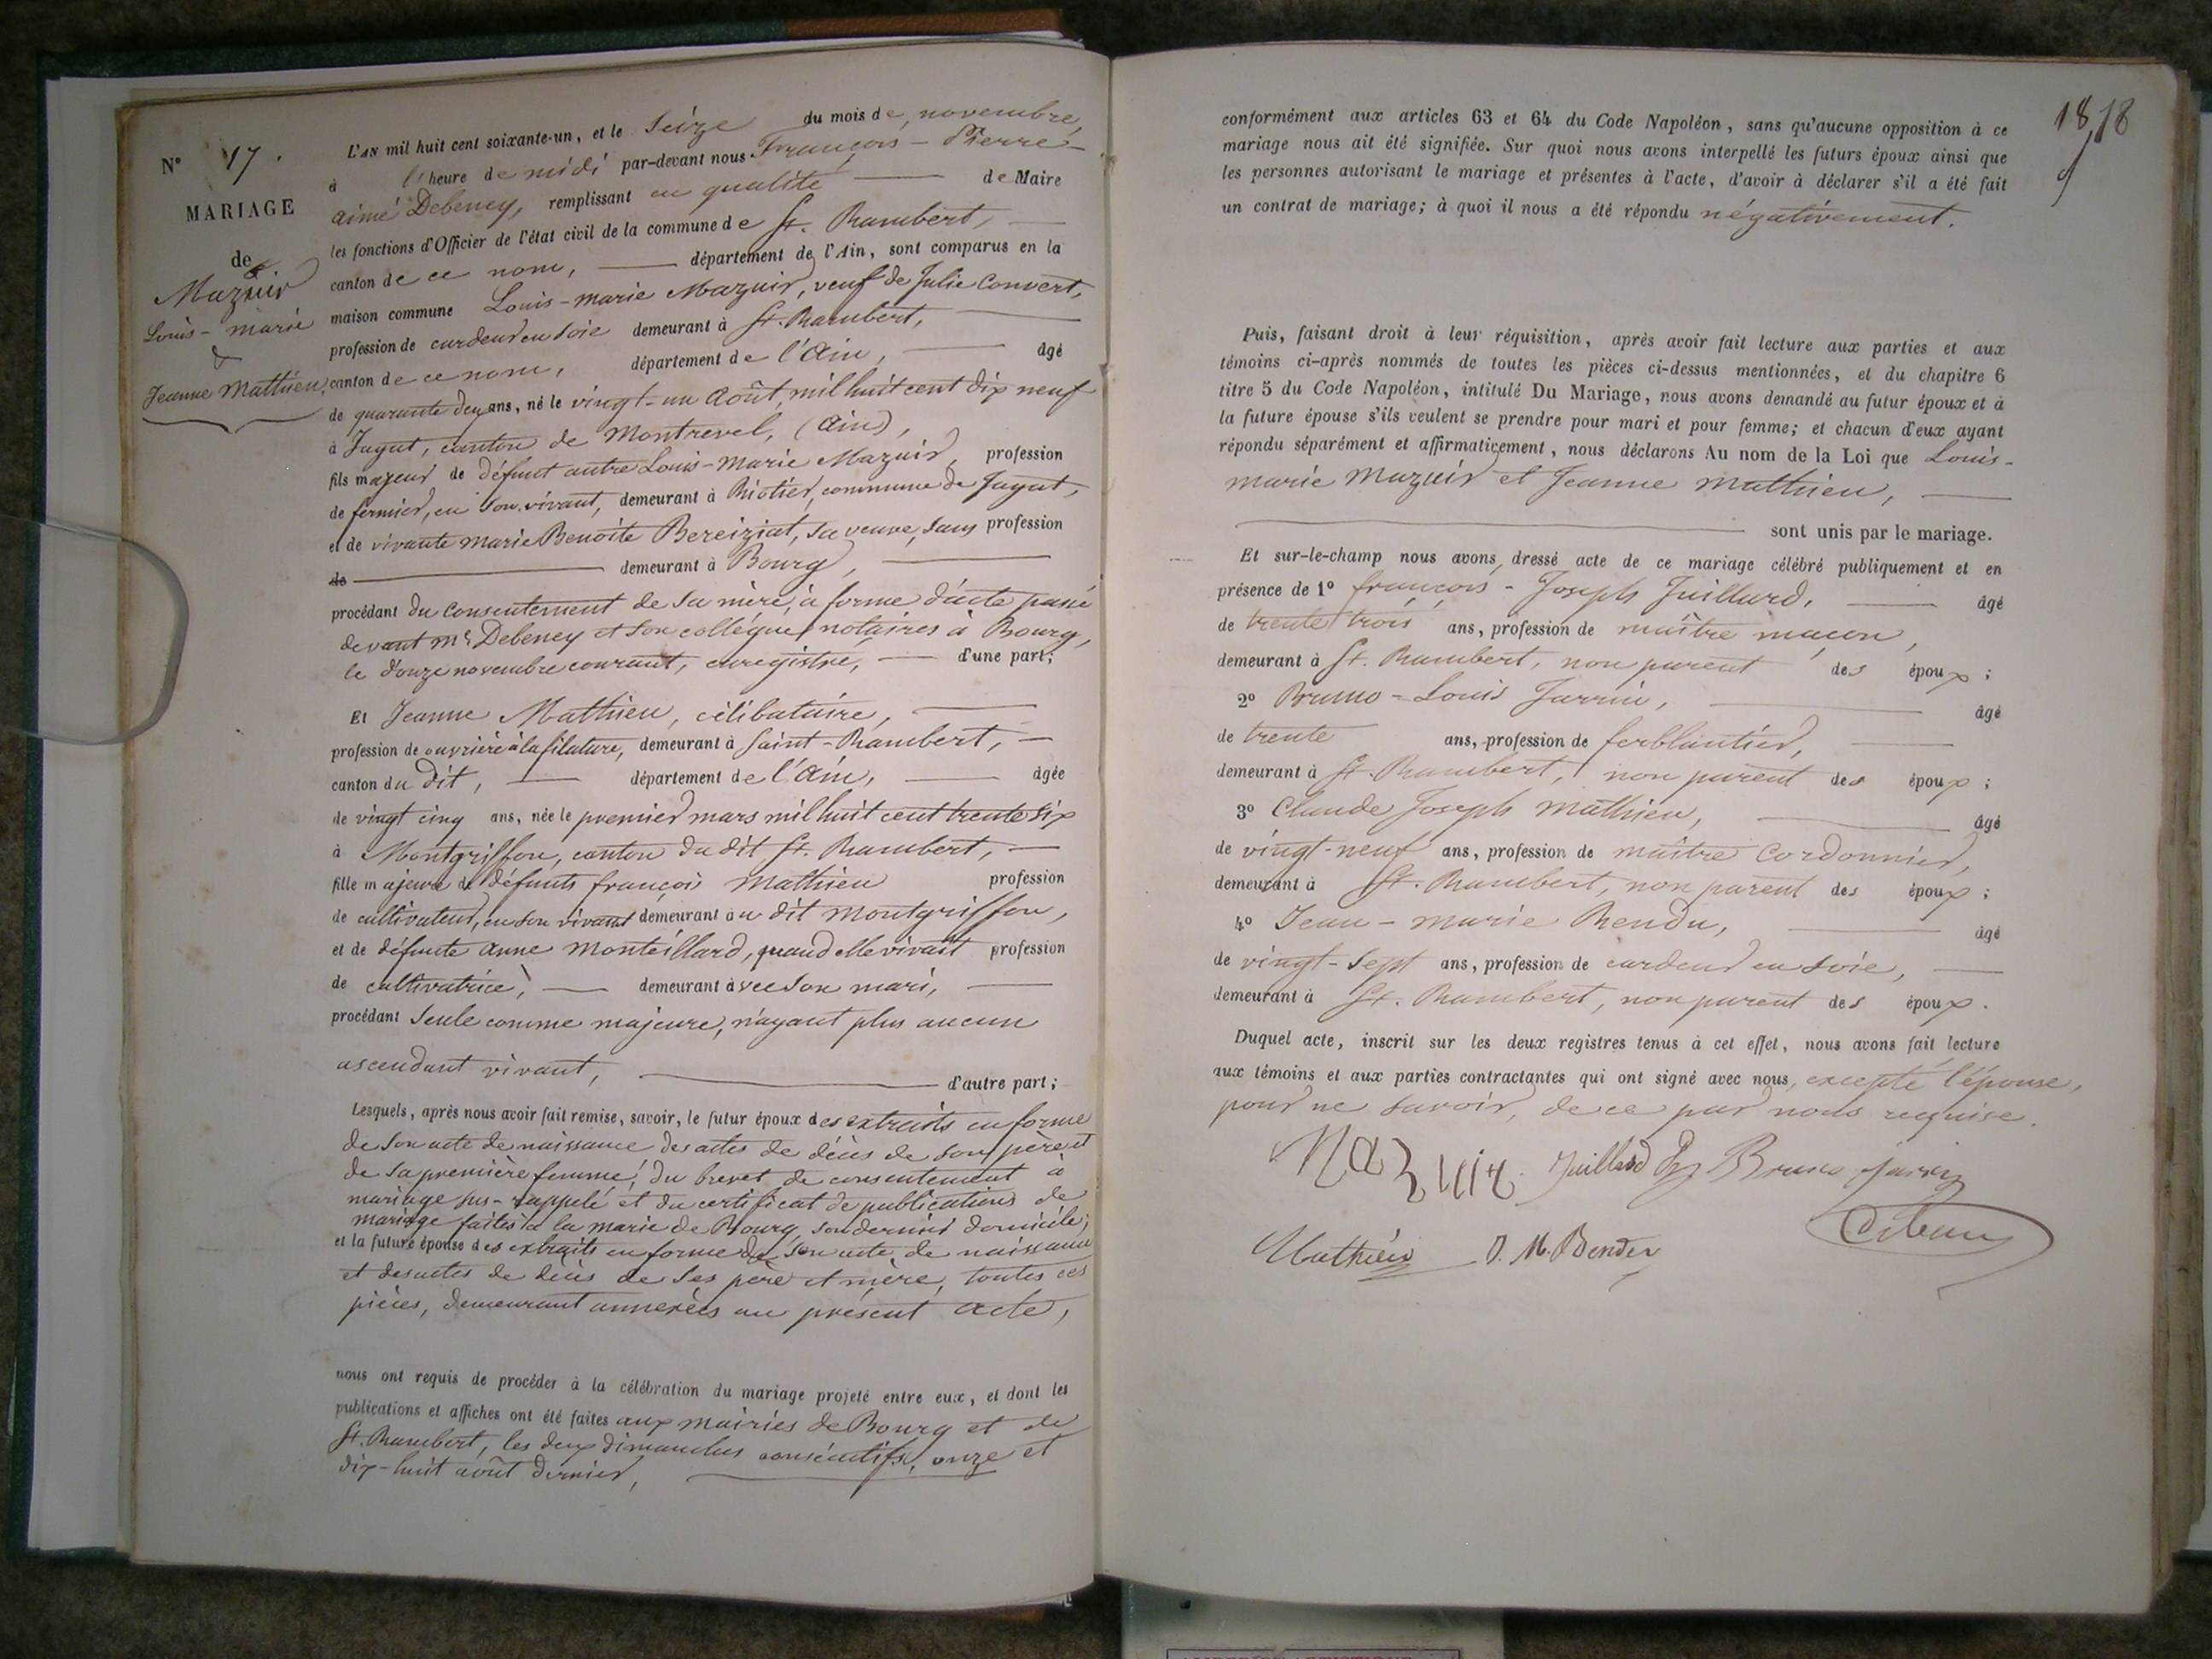 N° 17.
MARIAGE
de
Mazuir
Louis-marie
&
Jeanne Mathieu,
L'AN mil huit cent soixante-un, et le Seize du mois de novembre,
à l'heure de midi par-devant nous François-Pierre-
aimé Debeney, remplissant en qualité de Maire
les fonctions d'Officier de l'état civil de la commune de St. Rambert,
canton de ce nom, département de l'Ain, sont comparus en la
maison commune Louis-marie Mazuir, veuf de Julie Convert,
profession de cardeur en soie demeurant à St. Rambert,
canton de ce nom, département de l'Ain, âgé
de quarante deux ans, né le vingt-un Août mil huit cent dix neuf
à Jayat, canton de Montrevel, (Ain),
fils majeur de défunt autre Louis-Marie Mazuir, profession
de fermier, en son vivant, demeurant à Riotier, commune de Jayat,
et de vivante marie Benoite Bereiziat, sa veuve, sans profession
de demeurant à Bourg,
procédant du consentement de sa mère, à forme d'acte passé
devant Me. Debeney et son collégue, notaires à Bourg,
le douze novembre courant, enregistré, d'une part;
Et Jeanne Mathieu, célibataire,
profession de ouvrière à la filature, demeurant à Saint-Rambert,
canton du dit, département de l'Ain, âgée
de vingt cinq ans, née le premier mars mil huit cent trente six
à Montgriffon, canton du dit St. Rambert,
fille majeure de défunts françois Mathieu profession
de cultivateur, en son vivant demeurant au dit Montgriffon,
et de défunte Anne Monteillard, quand elle vivait profession
de cultivatrice, demeurant avec son mari,
procédant Seule comme majeure, n'ayant plus aucun
ascendant vivant, d'autre part;
Lesquels, après nous avoir fait remise, savoir, le futur époux des extraits en forme
de son acte de naissance des actes de décès de son père et
de sa première femme, du brevet de consentement à
mariage sus-rappelé et du certificat de publications de
mariage faites à la marie de Bourg, son dernier domicile;
et la future épouse des extraits en forme de son acte de naissance
et des actes de décès de ses père et mère, toutes ces
pièces, demeurant annexées au présent acte,
nous ont requis de procéder à la célébration du mariage projeté entre eux, et dont les
publications et affiches ont été faites aux mairies de Bourg et de
St. Rambert, les deux dimanches consécutifs, onze et
dix-huit août dernier,
18 18
conformément aux articles 63 et 64 du Code Napoléon, sans qu'aucune opposition à ce
mariage nous ait été signifiée. Sur quoi nous avons interpellé les futurs époux ainsi que
les personnes autorisant le mariage et présentes à l'acte, d'avoir à déclarer s'il a été fait
un contrat de mariage; à quoi il nous a été répondu négativement.
Puis, faisant droit à leur réquisition, après avoir fait lecture aux parties et aux
témoins ci-après nommés de toutes les pièces ci-dessus mentionnées, et du chapitre 6
titre 5 du Code Napoléon, intitulé Du Mariage, nous avons demandé au futur époux et à
la future épouse s'ils veulent se prendre pour mari et pour femme; et chacun d'eux ayant
répondu séparément et affirmativement, nous déclarons Au nom de la Loi que Louis-
marie Mazuir et Jeanne Mathieu,
sont unis par le mariage.
Et sur-le-champ nous avons dressé acte de ce mariage célébré publiquement et en
présence de 1° françois-Joseph Juillard, âgé
de trente trois ans, profession de maître maçon,
demeurant à St. Rambert, non parent des époux;
2° Bruno-Louis Jarrin, âgé
de trente ans, profession de ferblantier,
demeurant à St. Rambert, non parent des époux;
3° Claude Joseph Mathieu, âgé
de vingt-neuf ans, profession de maître Cordonnier,
demeurant à St. Rambert, non parent des époux;
4° Jean-marie Rendu, âgé
de vingt-Sept ans, profession de cardeur en soie,
demeurant à St. Rambert, non parent des époux.
Duquel acte, inscrit sur les deux registres tenus à cet effet, nous avons fait lecture
aux témoins et aux parties contractantes qui ont signé avec nous, excepté l'épouse,
pour ne savoir, de ce par nous requise.
Mazuir. Juillard Bruno Jarrin
Mathieu J. M. Rendu Debeney